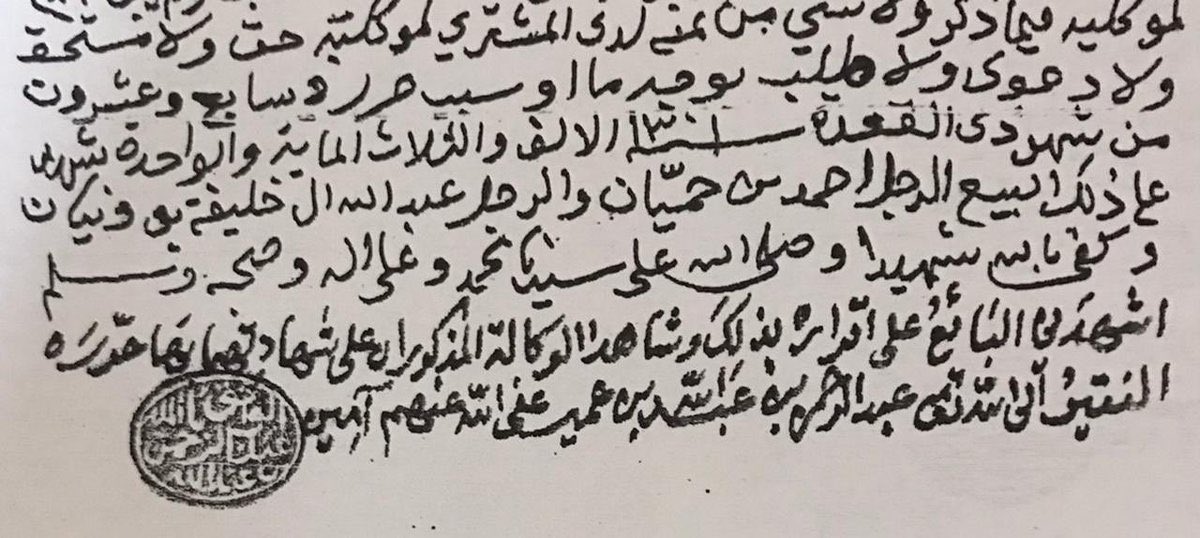 لموكليه فيما ذكر ولا شي من ثمنه لدى المشتري لموكلته حق ولا مستحق
ولا دعوى ولا طلب بوجه ما او سبب حرر ٥ سابع وعشروت
من شهر ذى القعدة سنة ١٣٠١ الالف والثلاث الماية والواحدة شهد
على ذلك البيع الرجل احمد بن حميّان والرجل عبد الله ال خليفة بو
وكفى بالله شهيدا وصلى الله على سيدنا محمد وعلى اله وصحبه وسلم
اشهدني البَائعُ على اقراره بذلك وشاهدا الوكالة المذكوران على شهادتهما بهَا حَرّرَه
الفقيرُ الى الله تعَالى عبد الرحمن بن عَبدالله بن عمير عفى الله عنهم آمين
عبد الرحمن
بن عبد الله